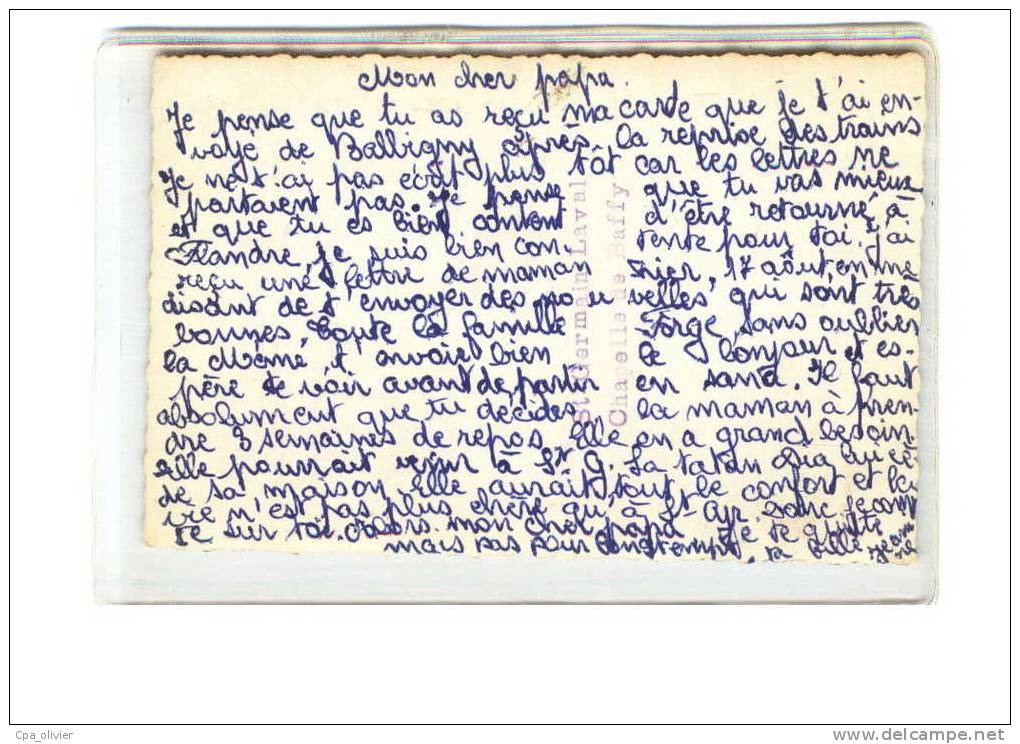 Mon cher papa.
Je pense que tu as reçu ma carte que je t'ai en-
voyé de Balbigny après la reprise des trains
Je ne t'ai pas écrit plus tôt car les lettres ne
partaient pas. Je pense que tu vas mieux
et que tu es bien content d'être retourné à
Flandre, je suis bien con- tente pour toi. J'ai
reçu une lettre de maman hier, 17 août, en me
disant de t'envoyer des nou velles, qui sont très
bonnes. Toute la famille Forge, sans oublier
la Mémé, t'envoie bien le bonjour et es-
père te voir avant de partir en sana. Il faut
absolument que tu décides la maman à pren-
dre 3 semaines de repos. Elle en a grand besoin.
Elle pourrait venir à St G. La tatan
de sa maison, elle aurait tout le confort et la
vie n'est pas plus chère qu'à St donc
te sur toi. mon cher papa je te quitte
mais pas pour longtemps ta fille
St Germain Laval
Chapelle de Baffy
Cpa_olivier
www.delcampe.net